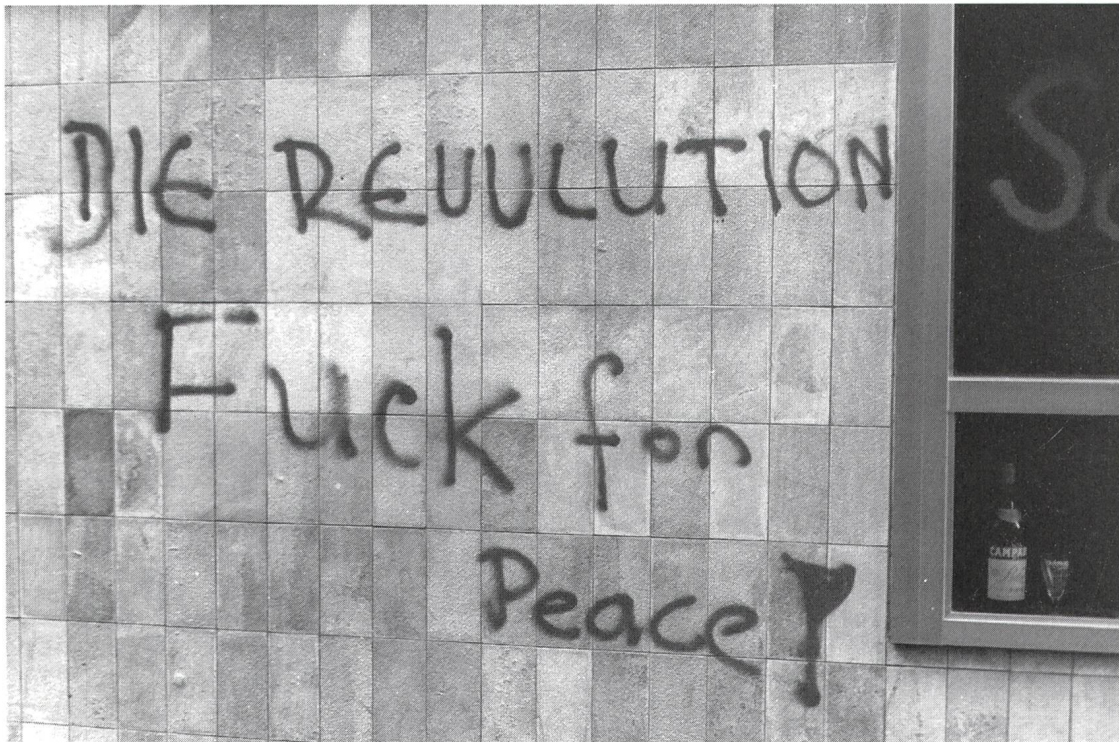 DIE REVULUTION
Fuck for
Peace!
CAMPAR